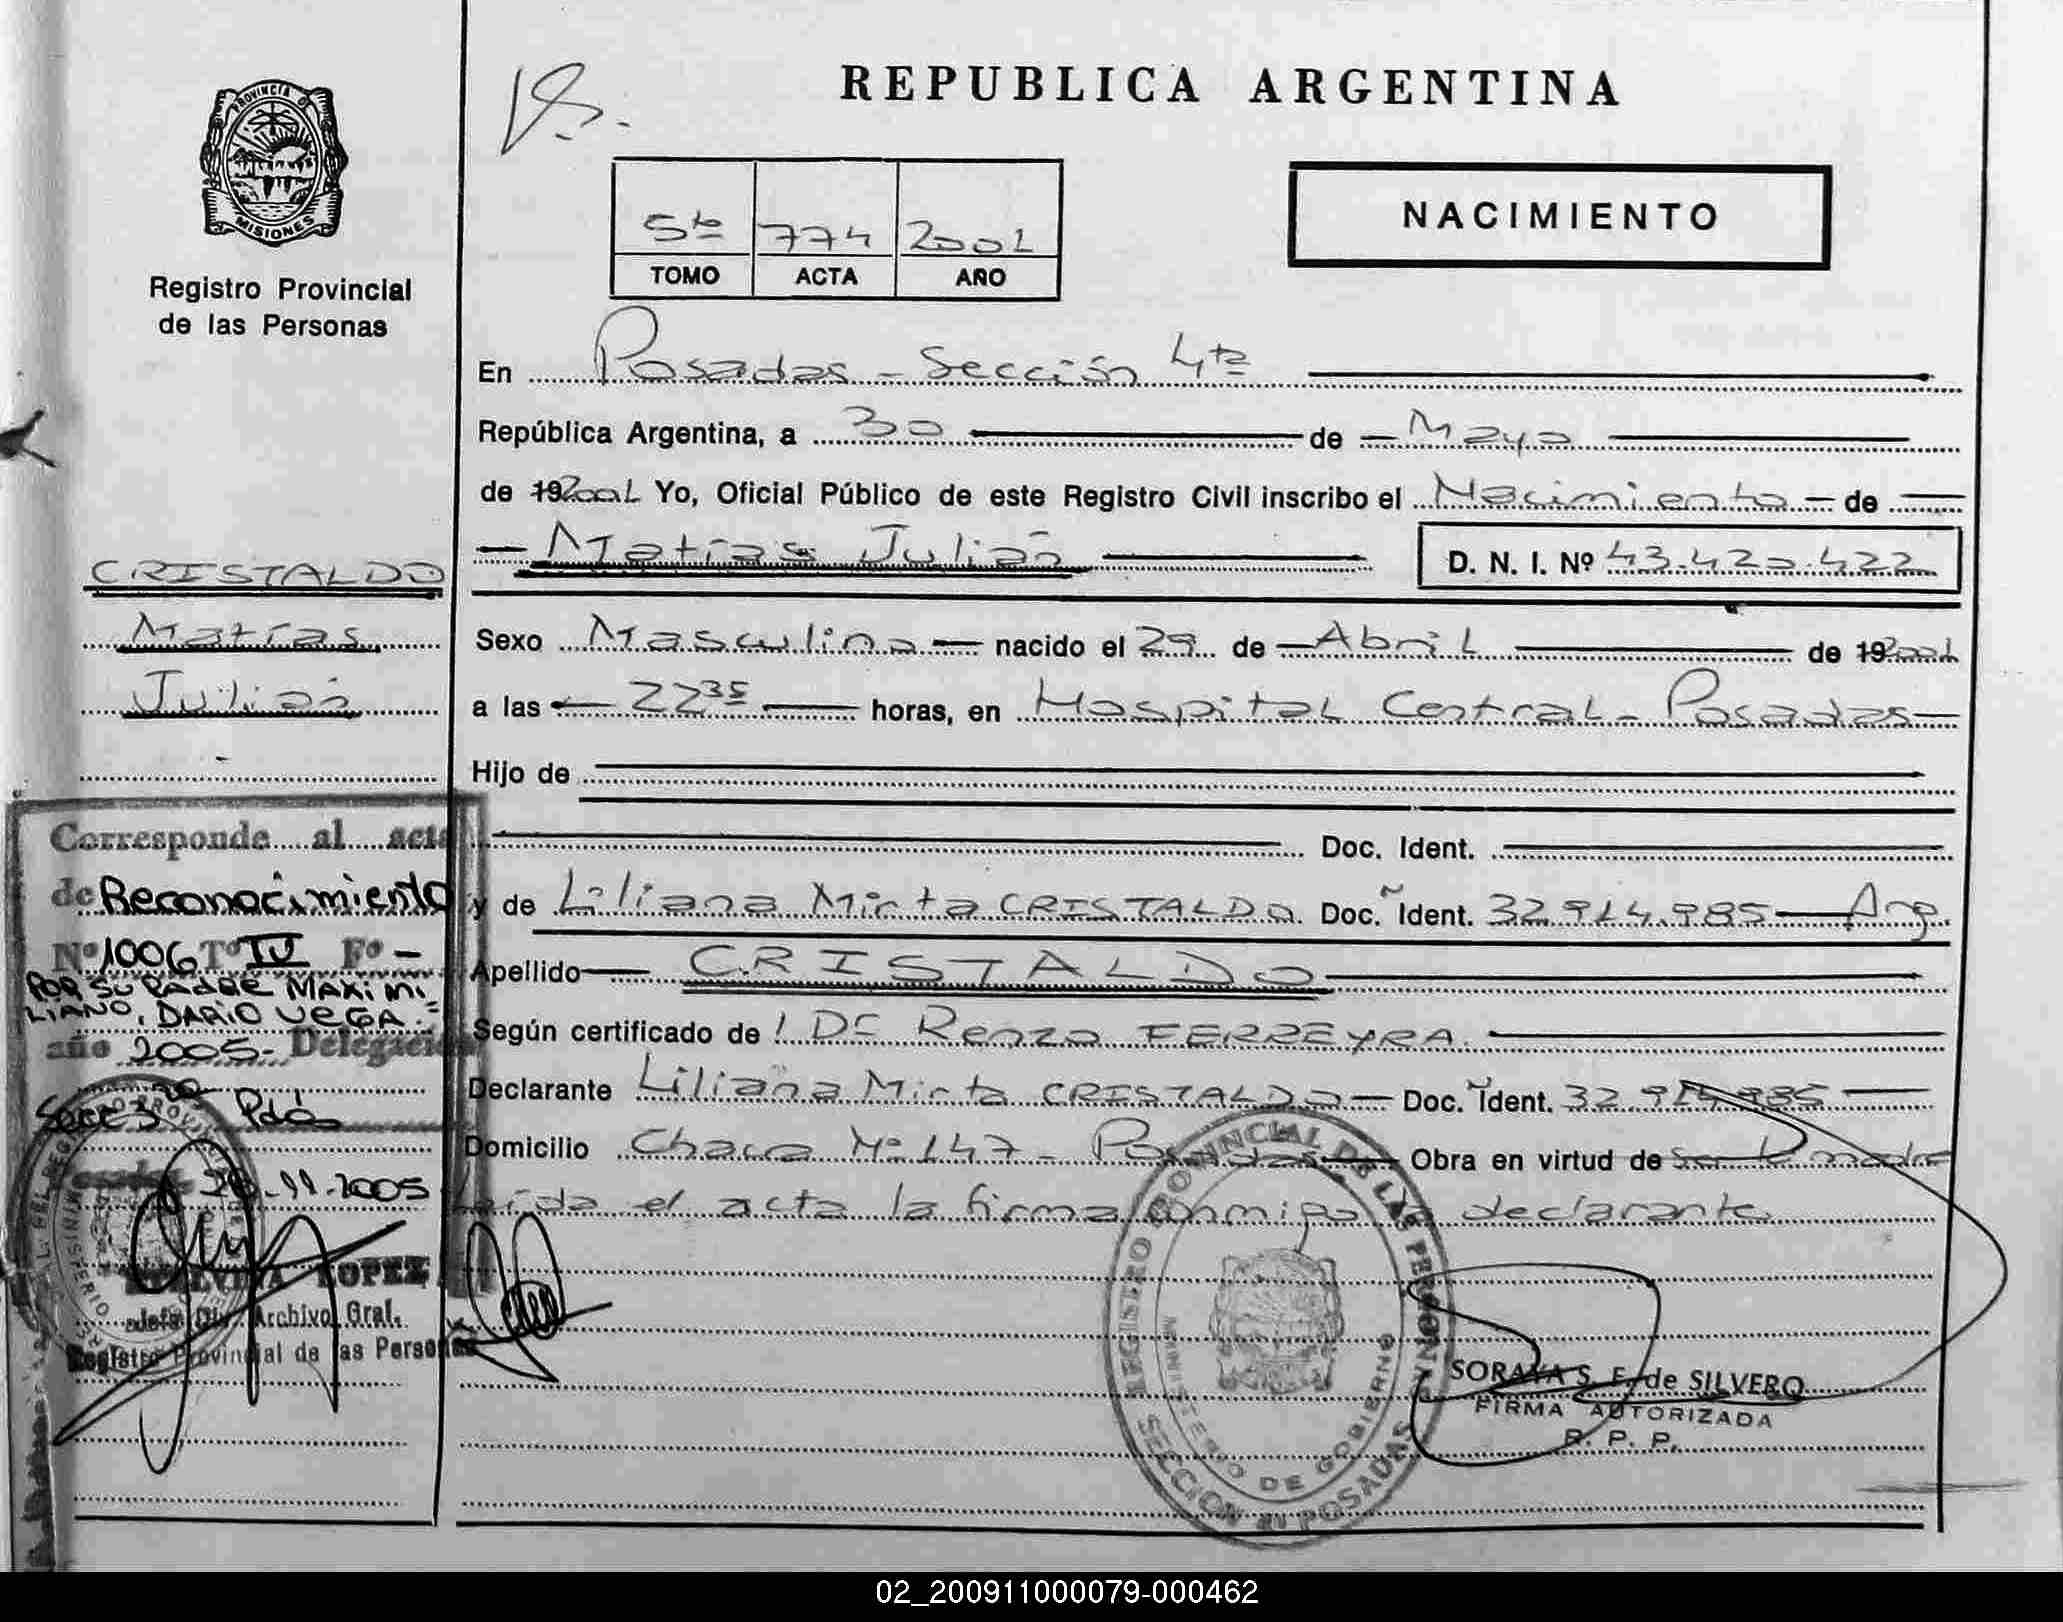 REPUBLICA ARGENTINA
PROVINCIA DE
MISIONES
Registro Provincial
de las Personas
5to 774 2001
TOMO ACTA AÑO
NACIMIENTO
En Posadas - Sección 4ta
República Argentina, a 30 de Mayo
de 192001 Yo, Oficial Público de este Registro Civil inscribo el Nacimiento de
Matías Julián
D. N. I. Nº 43.420.422
Sexo Masculino nacido el 29 de Abril de 192001
a las 22 35 horas, en Hospital Central - Posadas
Hijo de
Doc. Ident.
y de Liliana Mirta CRISTALDO. Doc. Ident. 32.914.985 Arg.
Apellido CRISTALDO
Según certificado de Dr Renzo FERREYRA.
Declarante Liliana Mirta CRISTALDO Doc. Ident. 32.914.985
Domicilio Chacra Nº 147 - Posadas Obra en virtud de Ser la madre
Leída el acta la firma conmigo declarante
CRISTALDO
Matías
Julián
Corresponde al acta
de Reconocimiento
Nº 1006 Tº IV Fº -
POR SU PADRE MAXIMI
LIANO, DARIO VEGA.-
año 2005- Delegación
Secc 3ra Pdas
11-2005
LOPEZ
Jefa Div. Archivo Gral.
Registro Provincial de las Personas
REGISTRO PROVINCIAL DE LAS PERSONAS
MINISTERIO DE GOBIERNO
SECCION 4ta POSADAS
SORAYA S. F. de SILVERO
FIRMA AUTORIZADA
R. P. P.
02_200911000079-000462